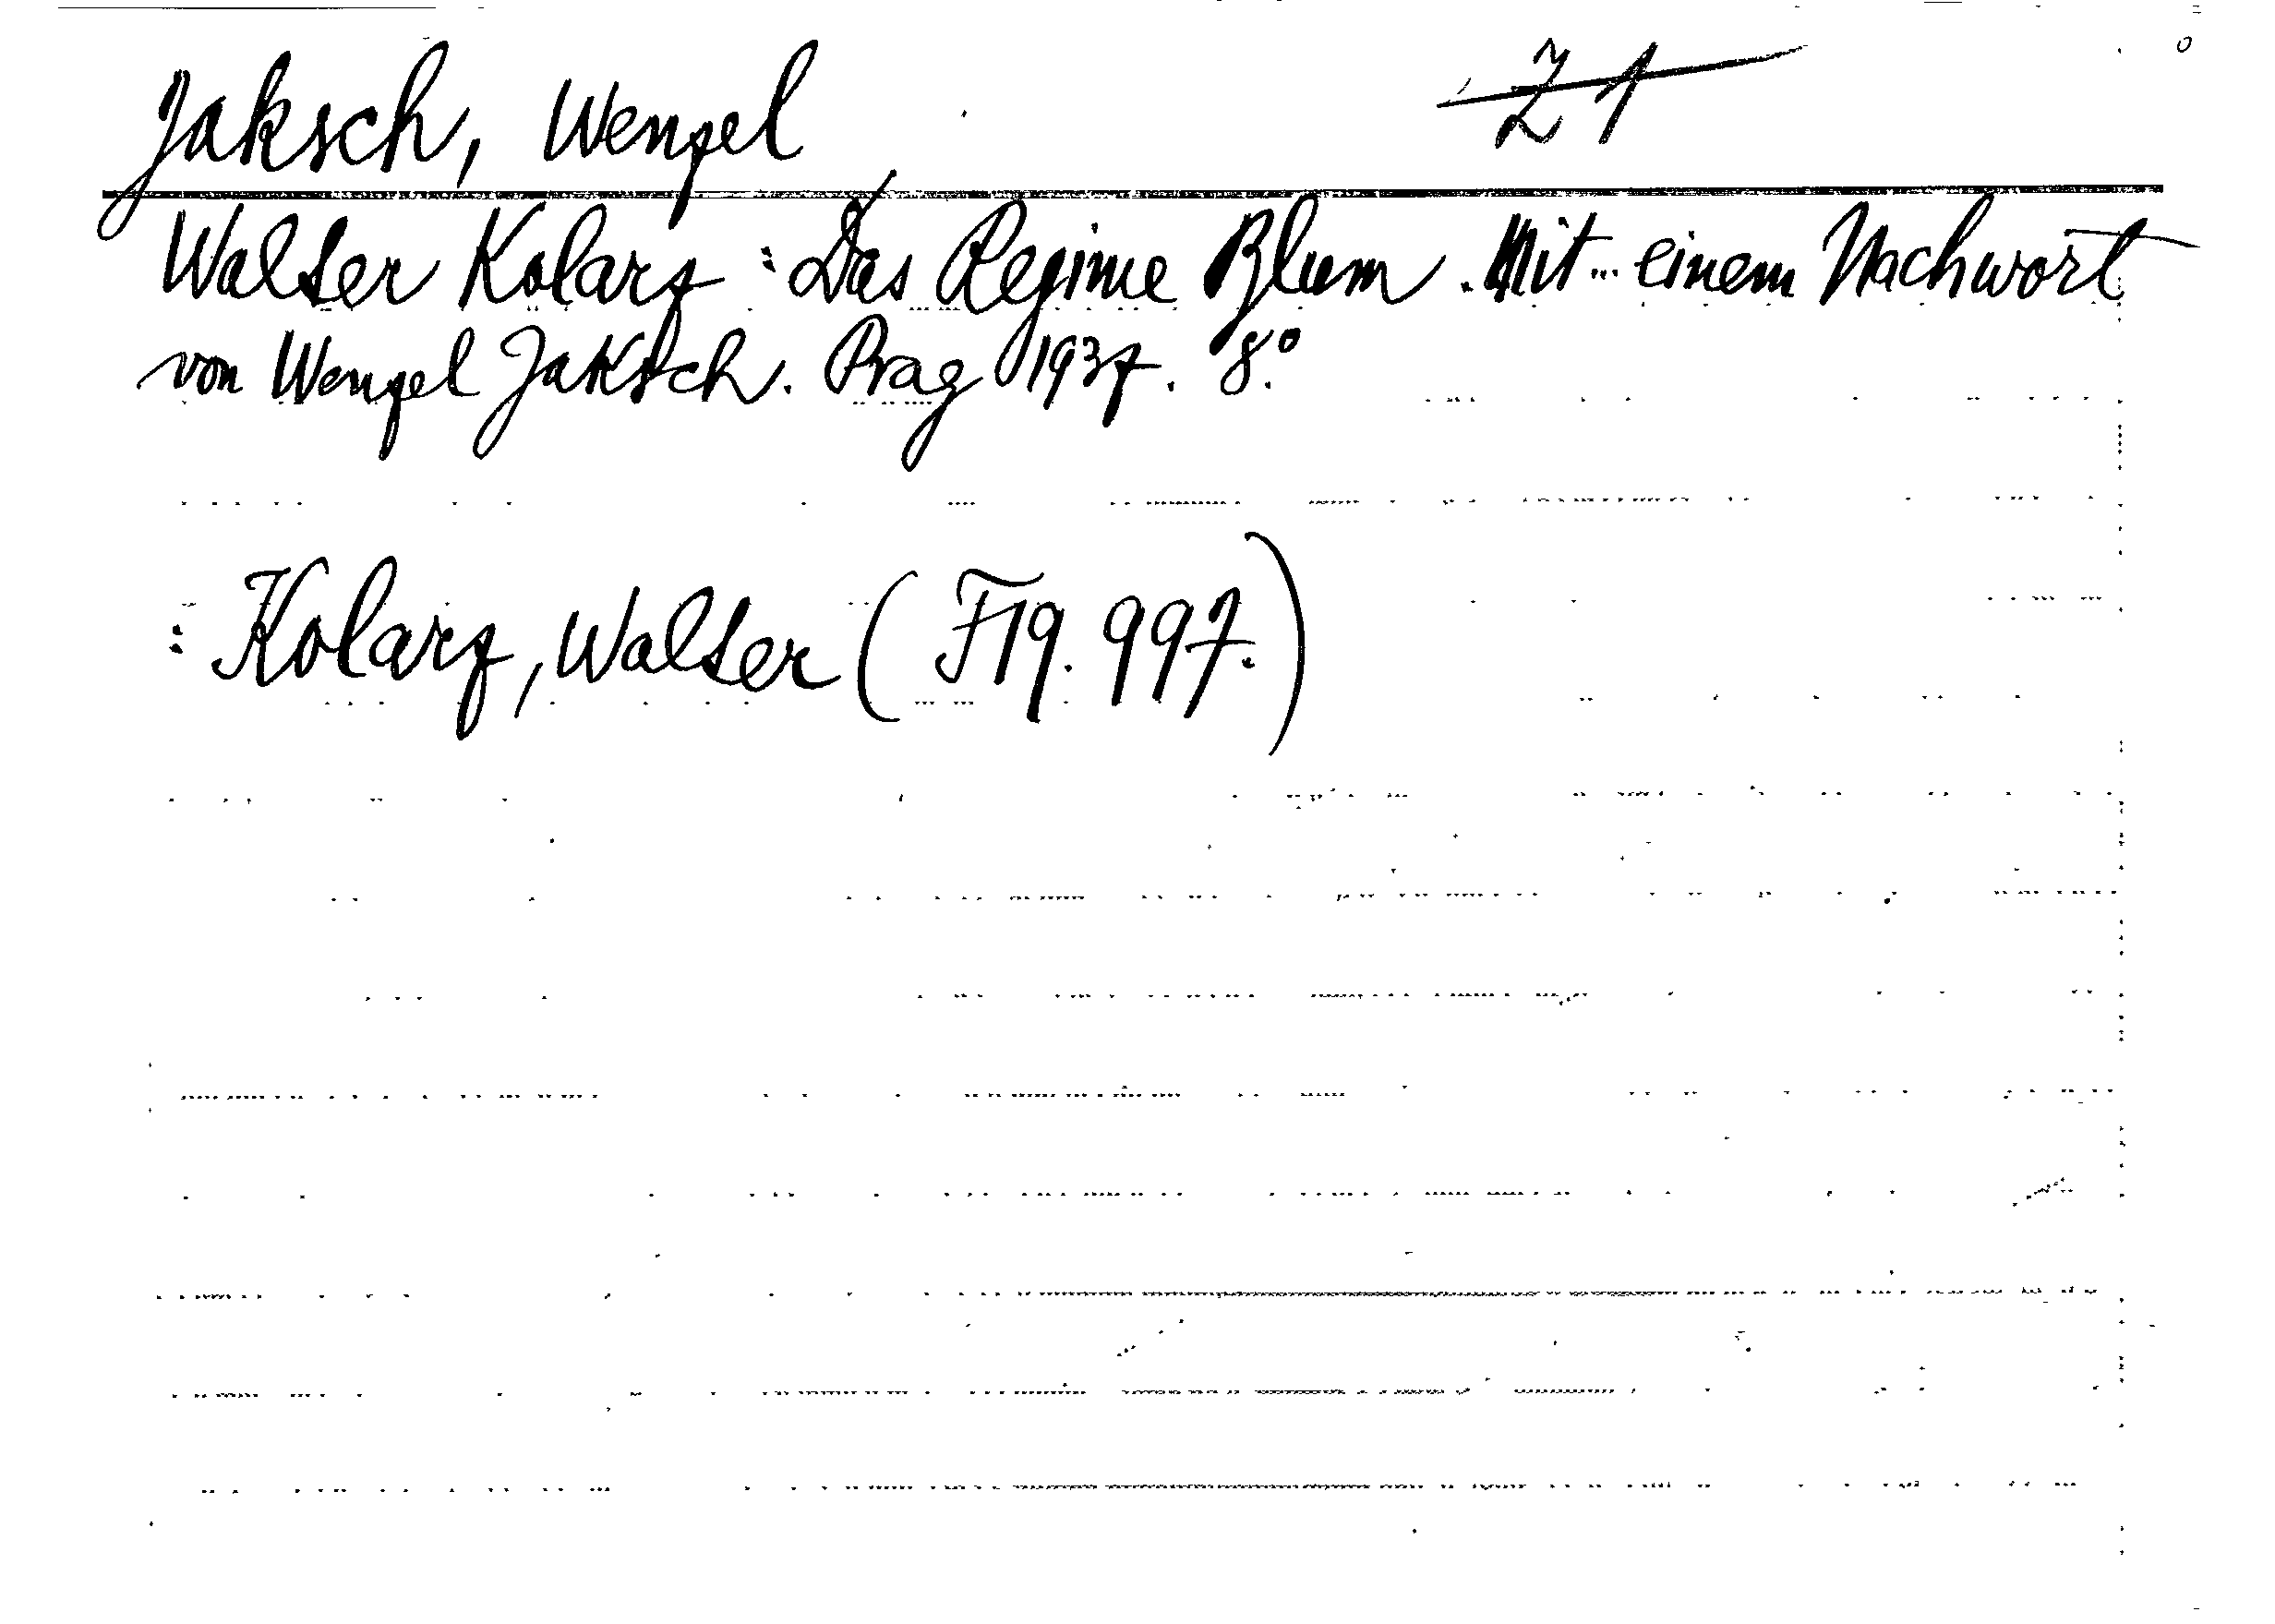 Jaksch, Wenzel Z1
Walter Kolarz : Das Regime Blum. Mit... einem Nachwort
von Wenzel Jaksch. Prag 1937. 8.°
: Kolarz, Walter (F19.997.)